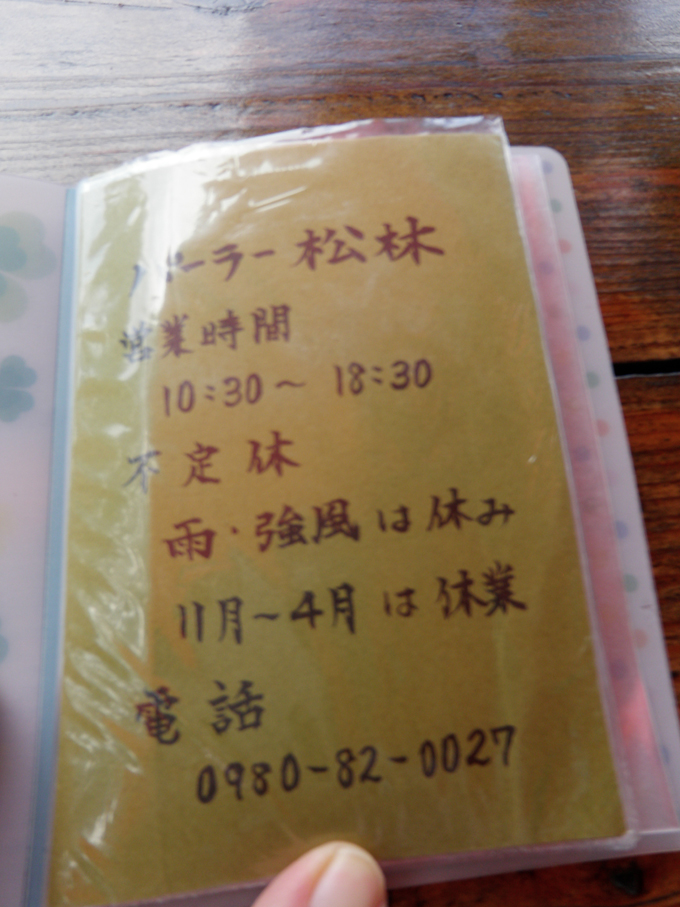 パーラー松林
営業時間
10:30～ 18:30
不定休
雨・強風は休み
11月～4月は休業
電話
0980-82-0027